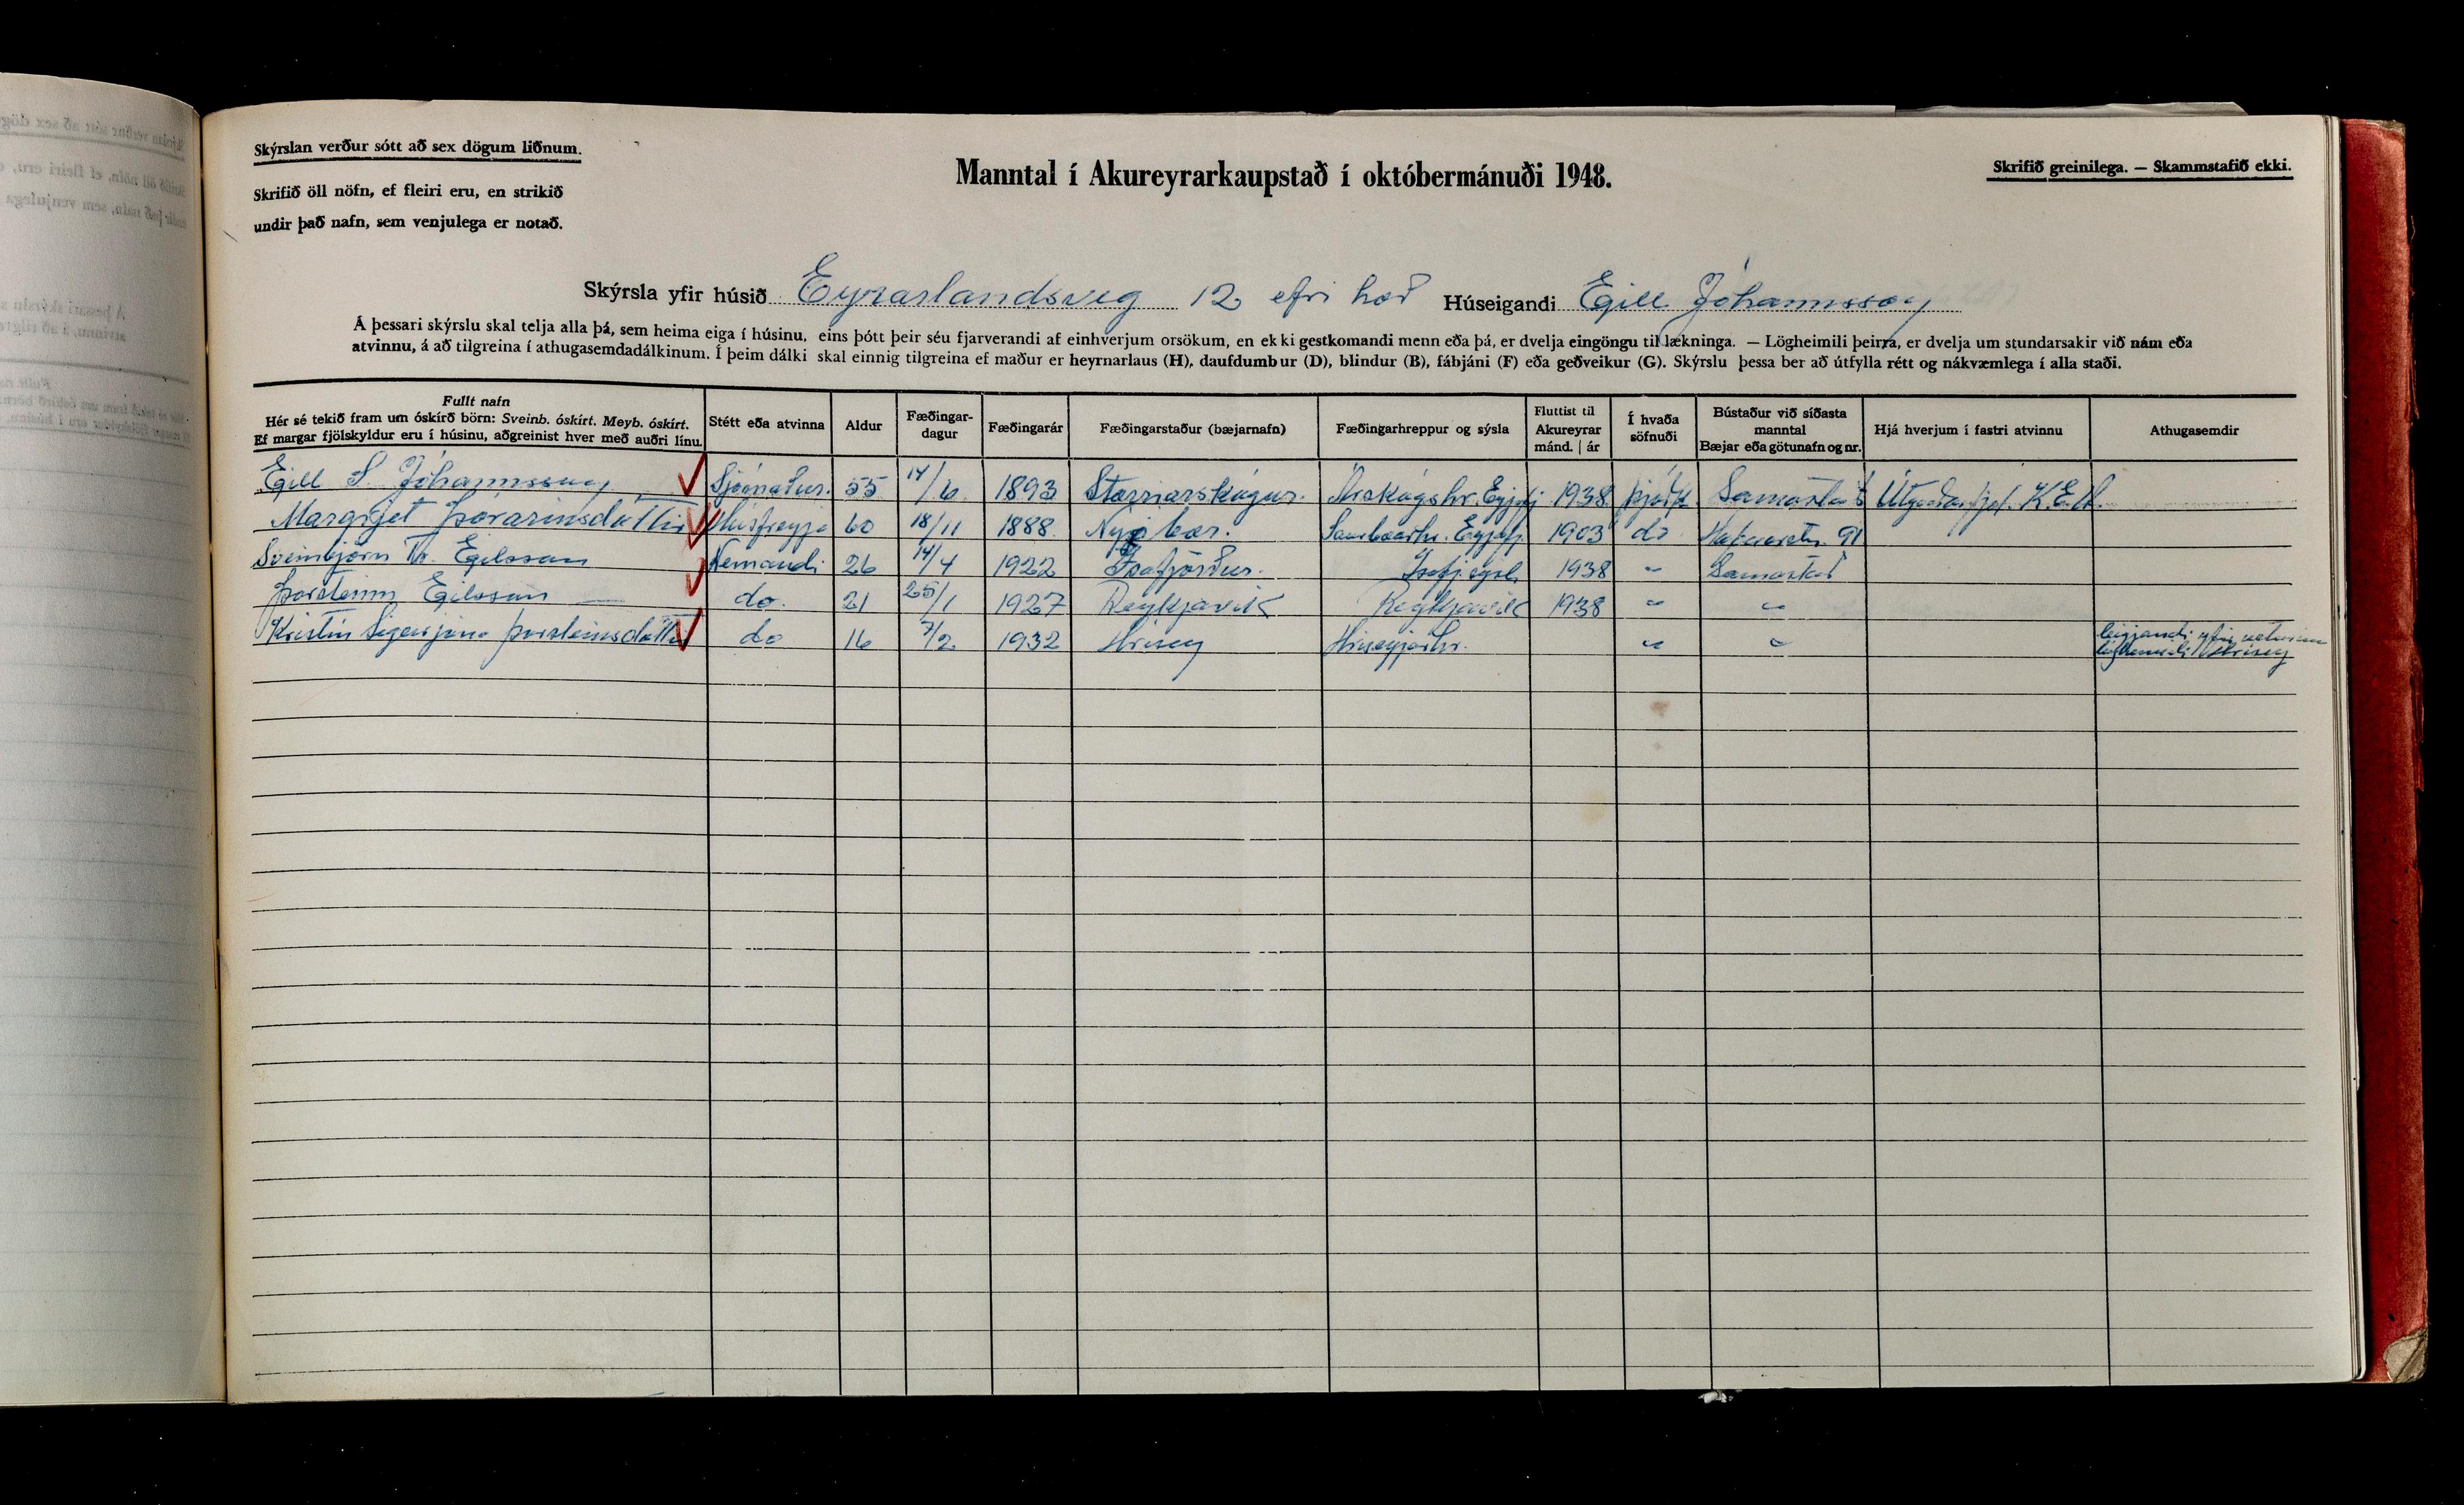 Skýrslan verður sótt að sex dögum liðnum.
Skrifið öll nöfn, ef fleiri eru, en strikið
undir það nafn, sem venjulega er notað.
Manntal í Akureyrarkaupstað í októbermánuði 1948.
Skrifið greinilega. — Skammstafið ekki.
Skýrsla yfir húsið Eyrarlandsveg 12 efri hæð Húseigandi Egill Jóhannsson
Á þessari skýrslu skal telja alla þá, sem heima eiga í húsinu, eins þótt þeir séu fjarverandi af einhverjum orsökum, en ekki gestkomandi menn eða þá, er dvelja eingöngu til lækninga. — Lögheimili þeirra, er dvelja um stundarsakir við nám eða
atvinnu, á að tilgreina í athugasemdadálkinum. Í þeim dálki skal einnig tilgreina ef maður er heyrnarlaus (H), daufdumbur (D), blindur (B), fábjáni (F) eða geðveikur (G). Skýrslu þessa ber að útfylla rétt og nákvæmlega í alla staði.
Fullt nafn
Hér sé tekið fram um óskírð börn: Sveinb. óskírt. Meyb. óskírt.
Ef margar fjölskyldur eru í húsinu, aðgreinist hver með auðri línu.
Stétt eða atvinna
Aldur
Fæðingar-
dagur
Fæðingarár
Fæðingarstaður (bæjarnafn)
Fæðingarhreppur og sýsla
Fluttist til
Akureyrar
mánd. | ár
Í hvaða
söfnuði
Bústaður við síðasta
manntal
Bæjar eða götunafn og nr.
Hjá hverjum í fastri atvinnu
Athugasemdir
Egill S. Jóhannsson Sjómaður. 55 14/6 1893 Stærriárskógur. Árskógshr. Eyjafj 1938 þjóðk. Samastað Útgerðarfjel. K.E.A.
Margrjet Þórarinsdóttir Húsfreyja 60 18/11 1888 Nýibær. Saurbæarhr. Eyjafj 1903 do Hafnarstr. 91
Sveinbjörn Th. Egilsson Nemandi 26 14/4 1922 Ísafjörður. Ísafj.sysl. 1938 " Samastað
Þorsteinn Egilsson do. 21 25/1 1927 Reykjavík Reykjavík 1938 " "
Kristín Sigurjóna Þorsteinsdóttir do 16 7/2 1932 Hrísey Hríseyjarhr. " "
leigjandi yfir veturinn
lögheimili Hrísey